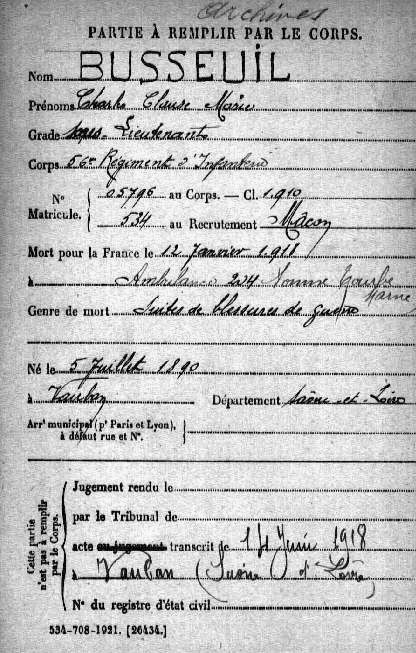 Archives
PARTIE À REMPLIR PAR LE CORPS.
Nom BUSSEUIL
Prénoms Charles Clause Marie
Grade sous-Lieutenant
Corps 56e Régiment d'Infanterie
N° Matricule. { 05796 au Corps. — Cl. 1910
534 au Recrutement Mâcon
Mort pour la France le 12 Janvier 1918
à Ambulance 224 Somme Marne
Genre de mort Suites de blessures de guerre
Né le 5 Juillet 1890
à Vauban Département Saône-et-Loire
Arrt municipal (pr Paris et Lyon), à défaut rue et N°. }
Cette partie n'est pas à remplir par le Corps.
Jugement rendu le
par le Tribunal de
acte ou jugement transcrit le 14 Juin 1918
à Vauban (Saône et Loire)
N° du registre d'état civil
534-708-1921. [26434.]